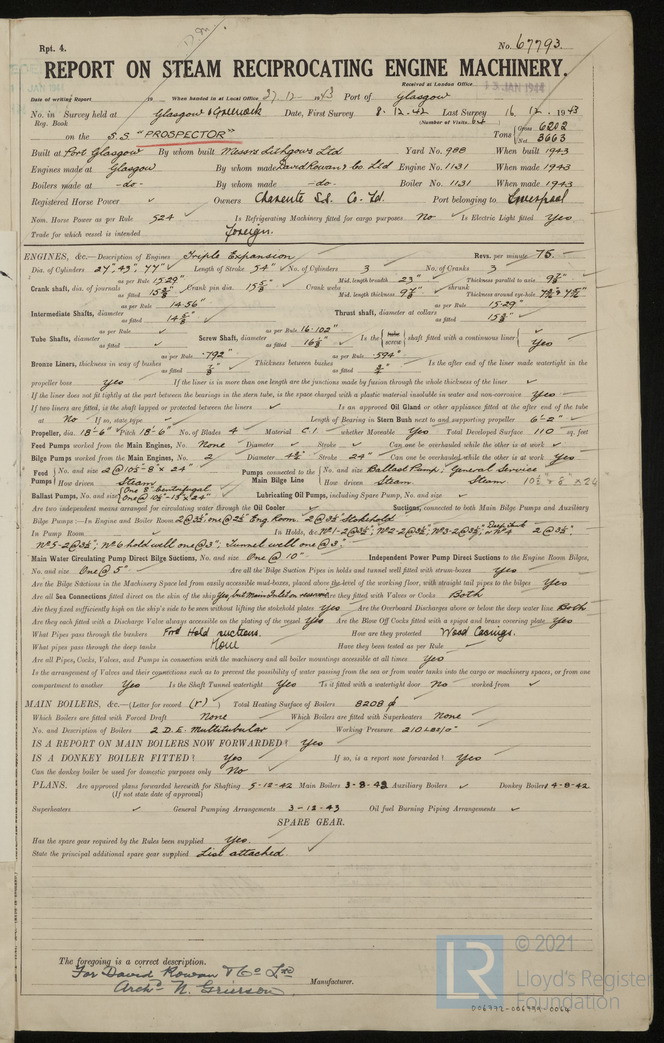 Rpt. 4.
No. 67793.
REPORT ON STEAM RECIPROCATING ENGINE MACHINERY.
Received at London Office 13 JAN 1944
Date of writing Report 19 When handed in at Local Office 27.12.1943 Port of Glasgow
No. in Survey held at Glasgow & Greenock Date, First Survey 8.12.42 Last Survey 16.12.1943
Reg. Book (Number of Visits 64)
on the S.S. "PROSPECTOR" Tons Gross 6202 Net 3663
Built at Port Glasgow By whom built Messrs Lithgows Ltd Yard No. 988 When built 1943
Engines made at Glasgow By whom made David Rowan & Co. Ltd Engine No. 1131 When made 1943
Boilers made at -do- By whom made -do- Boiler No. 1131 When made 1943
Registered Horse Power Owners Charente S.S. Co. Ltd. Port belonging to Liverpool
Nom. Horse Power as per Rule 524 Is Refrigerating Machinery fitted for cargo purposes No Is Electric Light fitted Yes
Trade for which vessel is intended Foreign.
ENGINES, &c.—Description of Engines Triple Expansion Revs. per minute 75.
Dia. of Cylinders 27", 43", 77" Length of Stroke 54" No. of Cylinders 3 No. of Cranks 3
Crank shaft, dia. of journals as per Rule 15.29" as fitted 15 5/8" Crank pin dia. 15 5/8" Crank webs Mid. length breadth 23" Mid. length thickness 9 7/8" shrunk Thickness parallel to axis 9 7/8" Thickness around eye-hole
Intermediate Shafts, diameter as per Rule 14.56" as fitted 14 5/8" Thrust shaft, diameter at collars as per Rule 15.29" as fitted 15 5/8"
Tube Shafts, diameter as per Rule as fitted Screw Shaft, diameter as per Rule 16.102" as fitted 16 1/2" Is the tube screw shaft fitted with a continuous liner Yes
Bronze Liners, thickness in way of bushes as per Rule .792" as fitted 7/8" Thickness between bushes as per Rule .594" as fitted 3/4" Is the after end of the liner made watertight in the
propeller boss Yes If the liner is in more than one length are the junctions made by fusion through the whole thickness of the liner
If the liner does not fit tightly at the part between the bearings in the stern tube, is the space charged with a plastic material insoluble in water and non-corrosive Yes
If two liners are fitted, is the shaft lapped or protected between the liners Is an approved Oil Gland or other appliance fitted at the after end of the tube
at No If so, state type Length of Bearing in Stern Bush next to and supporting propeller 6'-2"
Propeller, dia. 18'-6" Pitch 18'-6" No. of Blades 4 Material C.I. whether Moveable Yes Total Developed Surface 110 sq. feet
Feed Pumps worked from the Main Engines, No. None Diameter Stroke Can one be overhauled while the other is at work
Bilge Pumps worked from the Main Engines, No. 2 Diameter 4 1/2" Stroke 24" Can one be overhauled while the other is at work Yes
Feed Pumps No. and size 2 @ 10 1/2" - 8" x 24" Pumps connected to the Main Bilge Line No. and size Ballast Pump; General Service
How driven Steam How driven Steam Steam 10 1/2 x 8 x 24
Ballast Pumps, No. and size One 8" Centrifugal One @ 10 1/2" - 13" x 24" Lubricating Oil Pumps, including Spare Pump, No. and size
Are two independent means arranged for circulating water through the Oil Cooler Suctions, connected to both Main Bilge Pumps and Auxiliary
Bilge Pumps:—In Engine and Boiler Room 2 @ 3 1/2"; one @ 2 1/2" Eng. Room. 2 @ 3 1/2" Stokehold
In Pump Room In Holds, &c. No 1-2@3 1/2"; No 2-2@3 1/2"; No 3-2@3 1/2"; Deep tank No 4 2 @ 3 1/2",
No 5-2@3 1/2"; No 6 hold well one @ 3"; Tunnel well one @ 3"
Main Water Circulating Pump Direct Bilge Suctions, No. and size One @ 10" Independent Power Pump Direct Suctions to the Engine Room Bilges,
No. and size One @ 5" Are all the Bilge Suction Pipes in holds and tunnel well fitted with strum-boxes Yes
Are the Bilge Suctions in the Machinery Space led from easily accessible mud-boxes, placed above the level of the working floor, with straight tail pipes to the bilges Yes
Are all Sea Connections fitted direct on the skin of the ship Yes, but Main Inlet on reserve Are they fitted with Valves or Cocks Both
Are they fixed sufficiently high on the ship's side to be seen without lifting the stokehold plates Yes Are the Overboard Discharges above or below the deep water line Both
Are they each fitted with a Discharge Valve always accessible on the plating of the vessel Yes Are the Blow Off Cocks fitted with a spigot and brass covering plate Yes
What Pipes pass through the bunkers Ford Hold suctions. How are they protected Wood Casings.
What pipes pass through the deep tanks None Have they been tested as per Rule
Are all Pipes, Cocks, Valves, and Pumps in connection with the machinery and all boiler mountings accessible at all times Yes
Is the arrangement of Valves and their connections such as to prevent the possibility of water passing from the sea or from water tanks into the cargo or machinery spaces, or from one
compartment to another Yes Is the Shaft Tunnel watertight Yes Is it fitted with a watertight door No worked from
MAIN BOILERS, &c.—(Letter for record (r)) Total Heating Surface of Boilers 8208 ▫'
Which Boilers are fitted with Forced Draft None Which Boilers are fitted with Superheaters None
No. and Description of Boilers 2 D.E. Multitubular Working Pressure 210 LBS/□"
IS A REPORT ON MAIN BOILERS NOW FORWARDED? Yes
IS A DONKEY BOILER FITTED? Yes If so, is a report now forwarded? Yes
Can the donkey boiler be used for domestic purposes only No
PLANS. Are approved plans forwarded herewith for Shafting 5-12-42 Main Boilers 3-8-42 Auxiliary Boilers Donkey Boilers 4-8-42
(If not state date of approval)
Superheaters General Pumping Arrangements 3-12-43 Oil fuel Burning Piping Arrangements
SPARE GEAR.
Has the spare gear required by the Rules been supplied Yes.
State the principal additional spare gear supplied List attached.
The foregoing is a correct description.
For David Rowan & Co Ltd
Archd N. Grierson. Manufacturer.
LR © 2021
Lloyd's Register
Foundation
006792-006799-0064